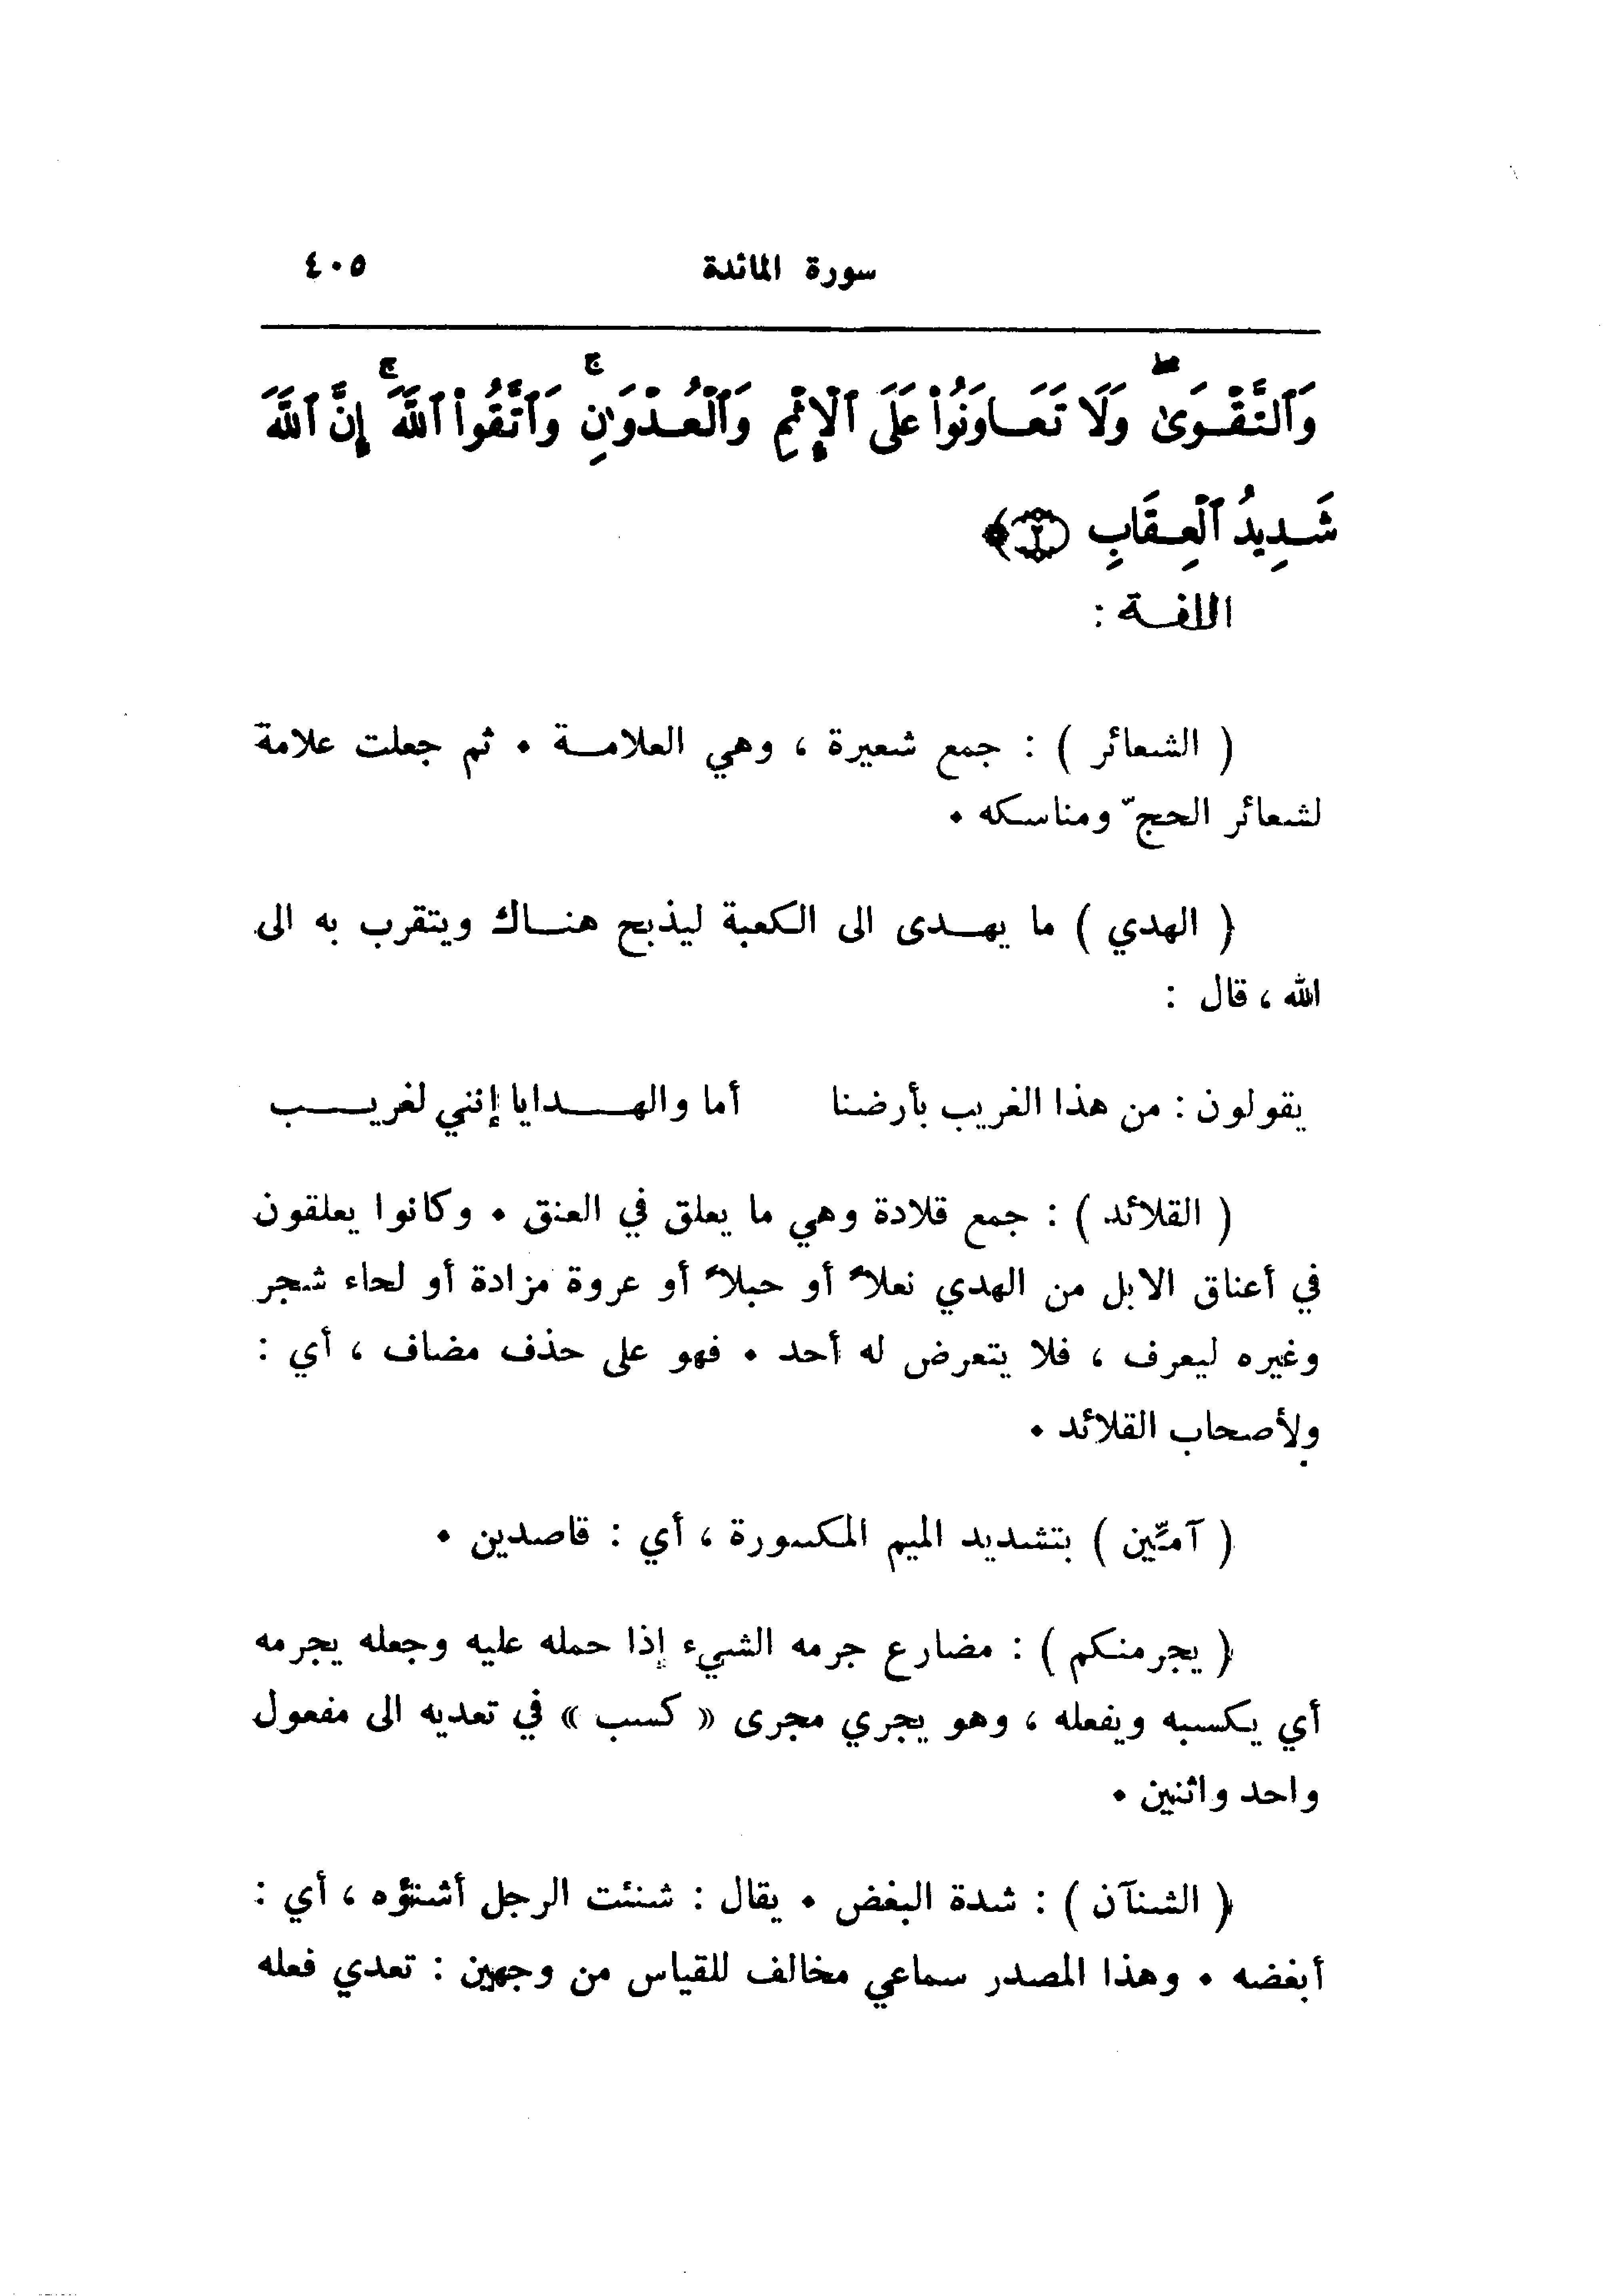 سورة المائدة ٤٠٥
وَٱلتَّقْوَىٰ ۖ وَلَا تَعَاوَنُوا۟ عَلَى ٱلْإِثْمِ وَٱلْعُدْوَٰنِ ۚ وَٱتَّقُوا۟ ٱللَّهَ ۚ إِنَّ ٱللَّهَ
شَدِيدُ ٱلْعِقَابِ ﴿٢﴾
اللغة :
( الشعائر ) : جمع شعيرة ، وهي العلامة . ثم جعلت علامة
لشعائر الحجّ ومناسكه .
( الهدي ) ما يهدى الى الكعبة ليذبح هناك ويتقرب به الى
الله ، قال :
يقولون : من هذا الغريب بأرضنا أما والهدايا إنني لغريب
( القلائد ) : جمع قلادة وهي ما يعلق في العنق . وكانوا يعلقون
في أعناق الابل من الهدي نعلاً أو حبلاً أو عروة مزادة أو لحاء شجر
وغيره ليعرف ، فلا يتعرض له أحد . فهو على حذف مضاف ، أي :
ولأصحاب القلائد .
( آمّين ) بتشديد الميم المكسورة ، أي : قاصدين .
( يجرمنكم ) : مضارع جرمه الشيء إذا حمله عليه وجعله يجرمه
أي يكسبه ويفعله ، وهو يجري مجرى « كسب » في تعديه الى مفعول
واحد واثنين .
( الشنآن ) : شدة البغض . يقال : شنئت الرجل أشنؤه ، أي :
أبغضه . وهذا المصدر سماعي مخالف للقياس من وجهين : تعدي فعله